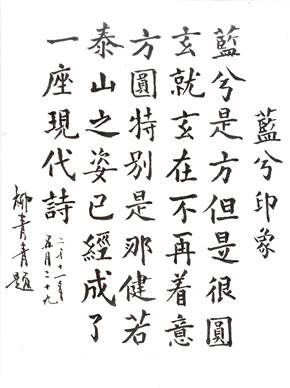 藍兮印象
藍兮是方但是很圓
玄就玄在不再着意
方圓特別是那健若
泰山之姿已經成了
一座現代詩
二〇一一年
五月二十九
柳青青題